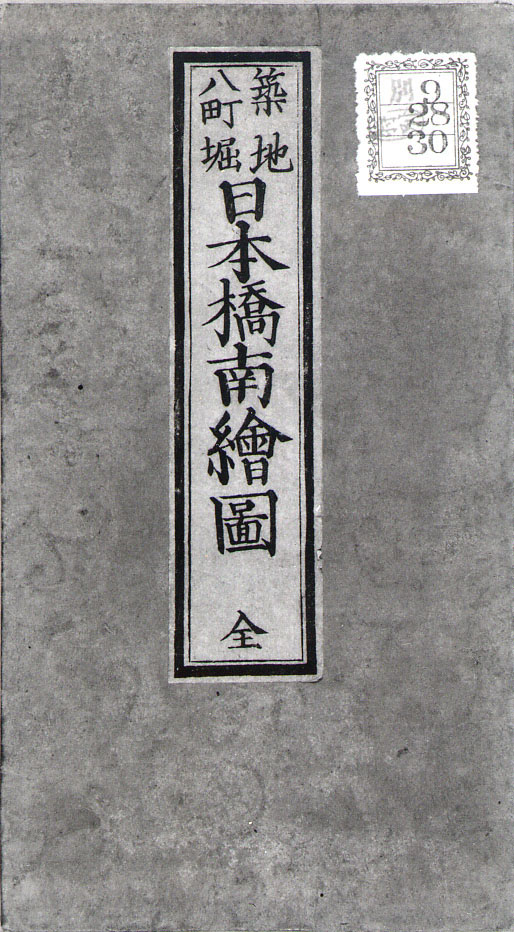 築地
八町堀
日本橋南繪圖
全
9
28
30